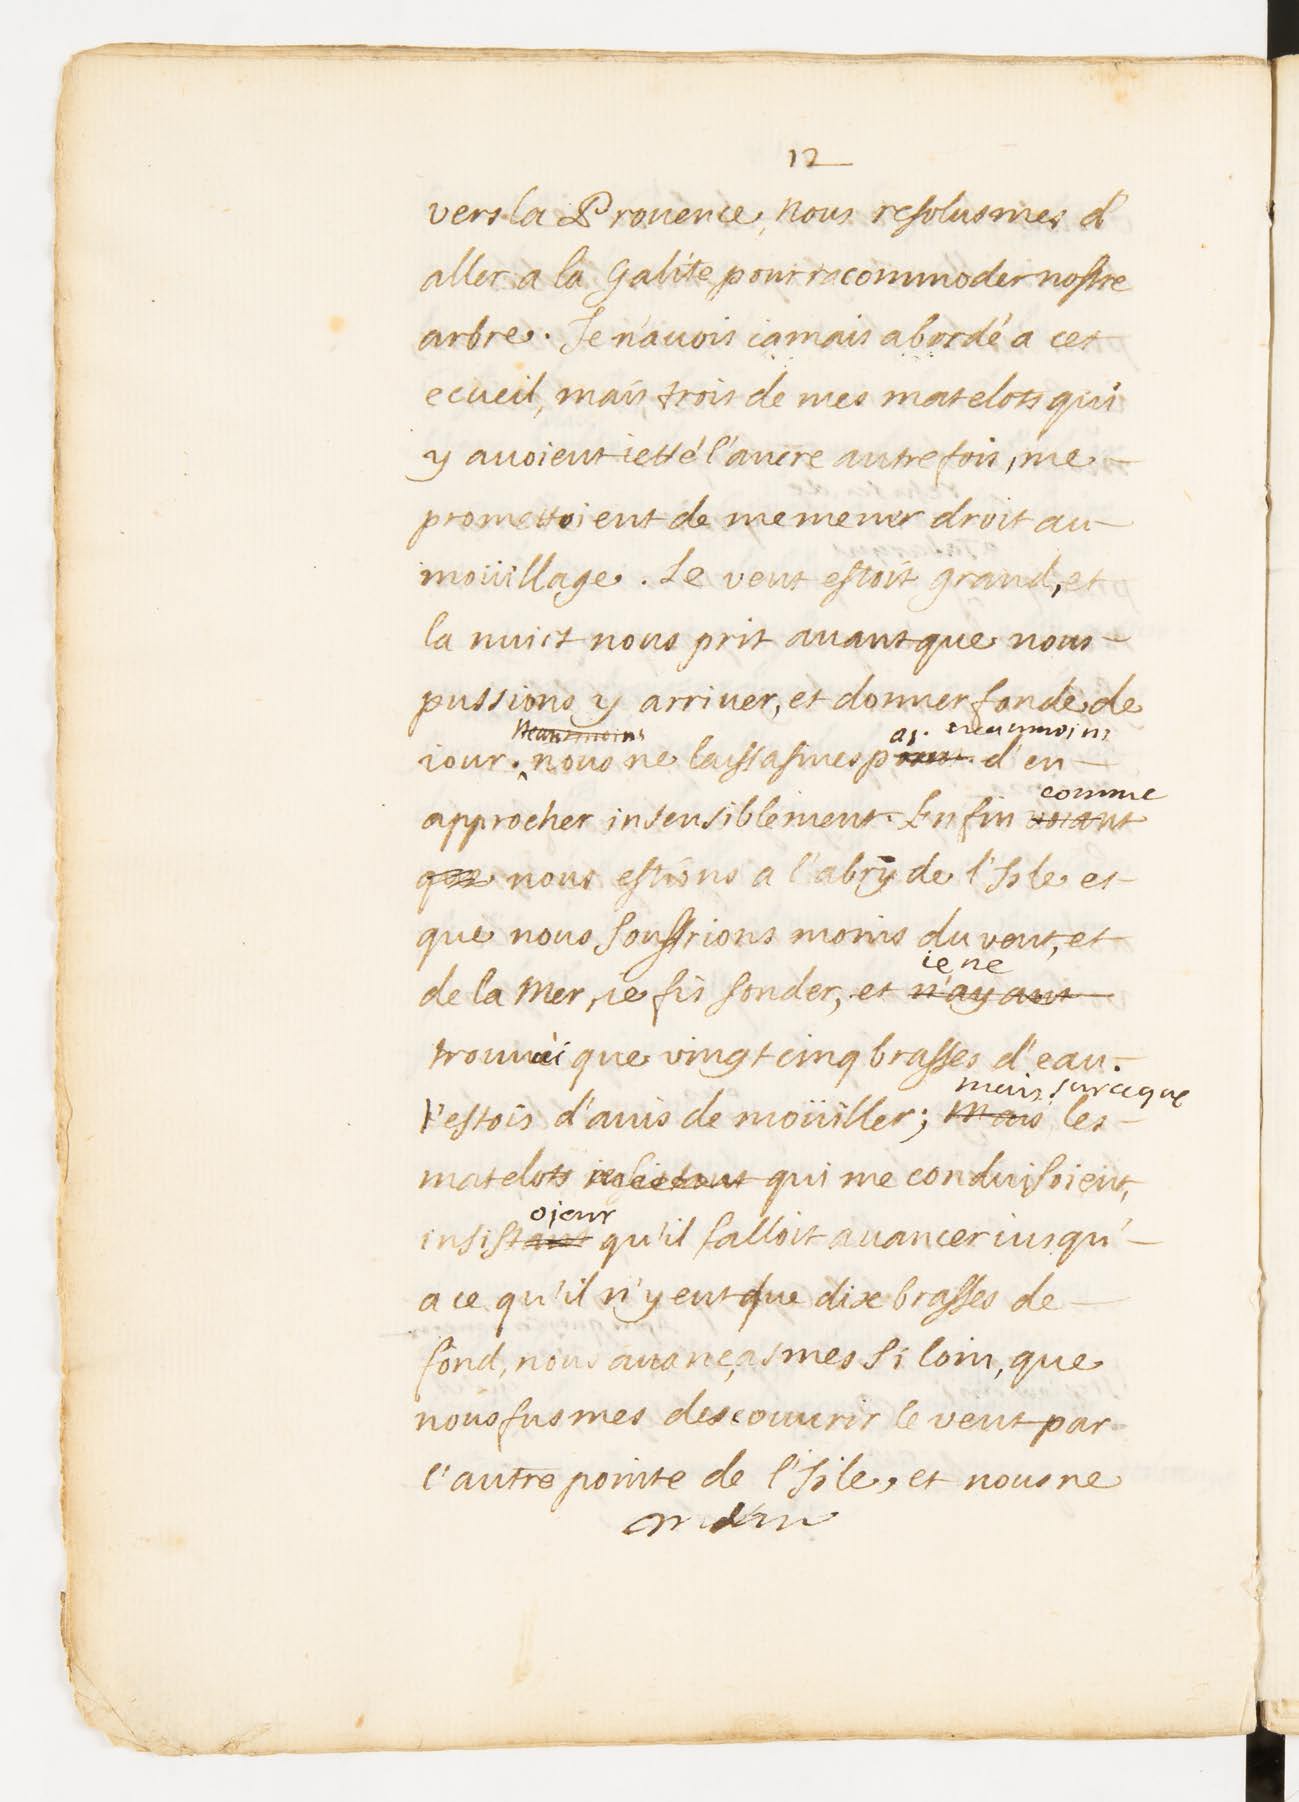 12
vers la Prouence, nous resolusmes d'
aller a la Galite pour racommoder nostre
arbre. Je n'auois iamais abordé a cet
ecueil, mais trois de mes matelots qui
y auoient ietté l'ancre autrefois, me
promettoient de me mener droit au
moüillage. Le vent estoit grand, et
la nuict nous prit auant que nous
pussions y arriuer, et donner fonde de
Neantmoins as. neanmoins
iour. nous ne laissasmes point d'en
comme
approcher insensiblement. Enfin voiant
que nous estions a l'abry de l'Isle et
que nous souffrions moins du vent, et
ie ne
de la Mer, ie fis sonder, et n'ayant
trouuai que vingt cinq brasses d'eau.
mais sur ce que
l'estois d'auis de moüiller; Mais les
matelots insistant qui me conduisoient,
oient
insistant qu'il falloit auancer iusqu'
a ce qu'il n'y eut que dix brasses de
fond, nous auançasmes si loin, que
nous fusmes descouurir le vent par
l'autre pointe de l'Isle, et nous ne